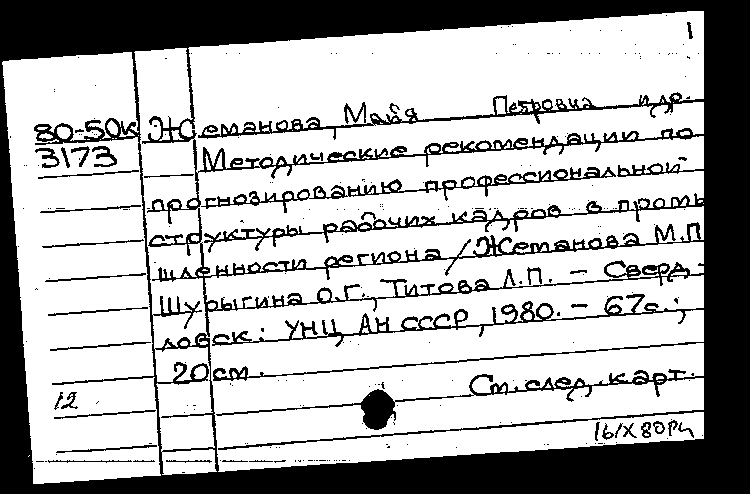 1
80-50к Жеманова, Майя Петровна и др.
3173 Методические рекомендации по
прогнозированию профессиональной
структуры рабочих кадров в промы
шленности региона / Жеманова М.П
Шурыгина О.Г., Титова Л.П. – Сверд-
ловск: УНЦ АН СССР, 1980. – 67с.;
20 см.
12 См. след. карт.
16/X 80